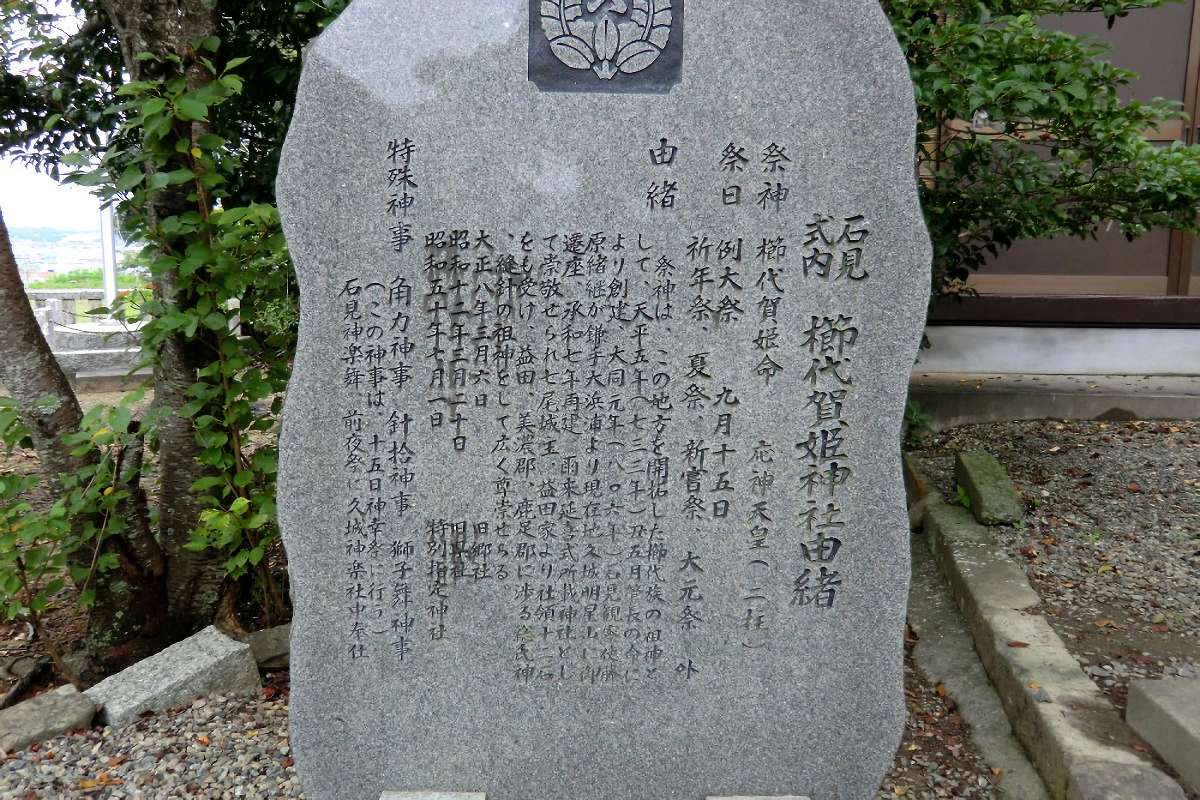 石見
式内 櫛代賀姫神社由緒
祭神 櫛代賀姫命 応神天皇(二柱)
祭日 例大祭 九月十五日
祈年祭、夏祭、新嘗祭、大元祭 外
由緒
祭神は、この地方を開拓した櫛代族の祖神と
して、天平五年(七三三年)丑五月 長の命に
より創建、大同元年(八〇六年)石見観察使藤
原緒継が鎌手大浜浦より現在地久城明星山に御
遷座、承和七年再建 雨来延喜式所載神社とし
て崇敬せられ七尾城主、益田家より社領十二石
をも受け、益田、美濃郡、鹿足郡に渉る総氏神
、縫針の祖神をして広く尊崇せらる。
大正八年三月六日 旧郷社
昭和十二年三月二十日 旧県社
昭和五十年七月一日 特別指定神社
特殊神事 角力神事 針拾神事 獅子舞神事
(この神事は、十五日神幸祭に行う)
石見神楽舞、前夜祭に久城神楽社中奉仕